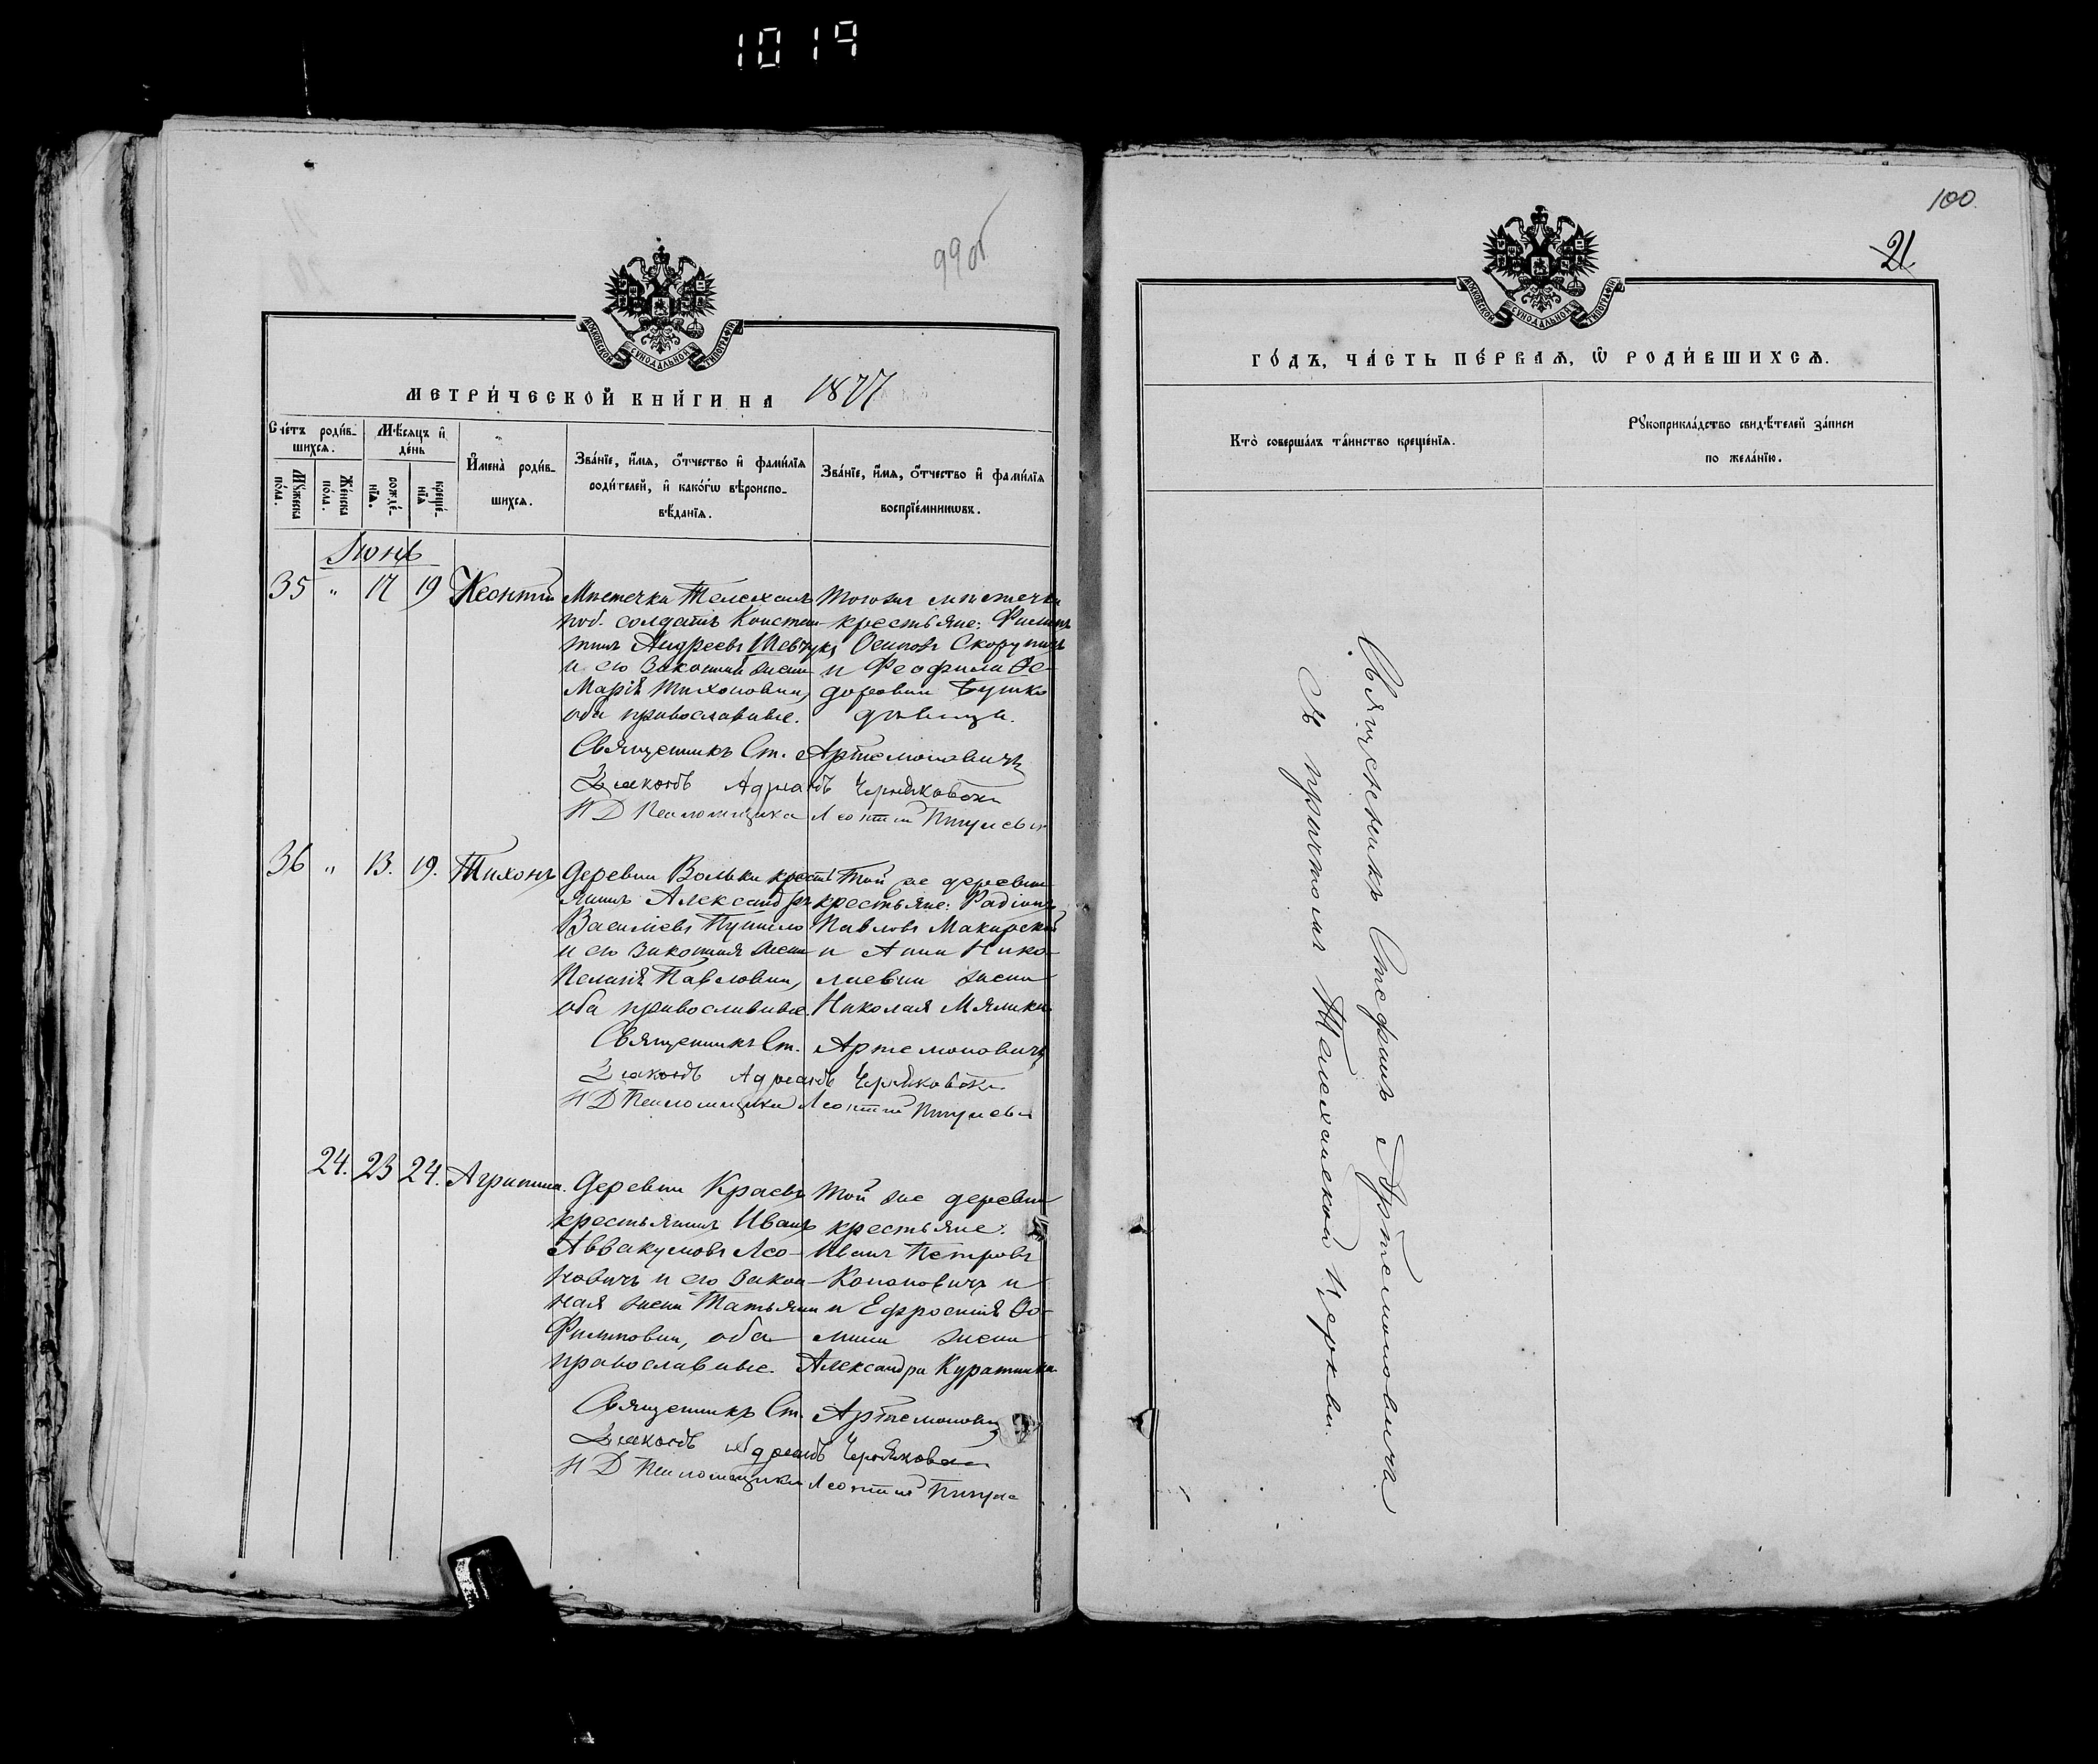 1019
99об
МОСКОВСКОЙ СѴНОДАЛЬНОЙ ТИПОГРАФІИ
МЕТРИ́ЧЕСКОЙ КНИ́ГИ НА 1877
Сче́тъ роди́в-
шихсѧ.
Мѣ́сѧцъ и҆
де́нь
Мꙋ́жеска по́ла.
Же́нска по́ла.
рожде́-
нїѧ.
креще́-
нїѧ
И҆мена̀ роди́в-
шихсѧ.
Зва́нїе, и҆́мѧ, ѻ҆́тчество и҆ фами́лїѧ
роди́телей, и҆ како́гѡ вѣроиспо-
вѣ́данїѧ.
Зва́нїе, и҆́мѧ, ѻ҆́тчество и҆ фами́лїѧ
воспрїе́мникѡвъ.
Іюнь
35 " 17 19 Леонтій
Мѣстечка Телеханъ
поб. солдатъ Констан-
тинъ Андреевъ Шевчукъ
и его законная жена
Марія Тихоновна,
оба православные.
Тогоже мѣстечка
крестьяне: Филиппъ
Осиповъ
и Феофила Ѳе-
доровна
дѣвица.
Священникъ Ст. Артемоновичъ
Діаконъ Адріанъ Черняковскі
И Д Псаломщика Леонтій
36 " 13. 19. Тихонъ
Деревни Вольки крестья
янинъ Александръ
Василіевъ
и его законная жена
Пелагія Павловна,
оба православные
Той же деревни
крестьяне: Радіонъ
Павловъ
и Анна Нико-
лаевна жена
Николая
Священникъ Ст. Артемоновичъ
Діаконъ Адріанъ Черняковскі
И Д Псаломщика Леонтій
24. 23 24. Агрипина.
Деревни Краевъ
крестьянинъ Иванъ
Аввакумовъ Лео-
новичъ и его закон-
ная жена Татьяна
Филиповна, оба
православные.
Той же деревни
крестьяне:
Иванъ Петровъ
Кононовичъ и
и Ефросинія Ѳо-
мина жена
Александра
Священникъ Ст. Артемоновичъ
Діаконъ Адріанъ Черняковскі
И Д Псаломщика Леонтій
100.
21
МОСКОВСКОЙ СѴНОДАЛЬНОЙ ТИПОГРАФІИ
ГО́ДЪ, ЧА́СТЬ ПЕ́РВАѦ, Ѡ҆ РОДИ́ВШИХСѦ.
Кто̀ соверша́лъ та́инство креще́нїѧ.
Рꙋкоприкла́дство свидѣ́телей за́писи
по жела́нїю.
Священникъ Стефанъ Артемоновичъ
съ причтомъ Телеханской Церкви.